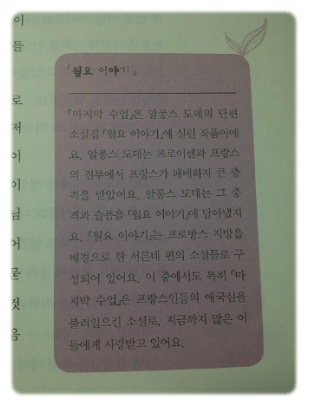 이
들
로
저
이
이
님
어
묻
것
음
『월요 이야기』
『마지막 수업』은 알퐁스 도데의 단편
소설집 『월요 이야기』에 실린 작품이에
요. 알퐁스 도데는 프로이센과 프랑스
의 전투에서 프랑스가 패배하자 큰 충
격을 받았어요. 알퐁스 도데는 그 충
격과 슬픔을 『월요 이야기』에 담아냈지
요. 『월요 이야기』는 프로방스 지방을
배경으로 한 서른네 편의 소설들로 구
성되어 있어요. 이 중에서도 특히 『마
지막 수업』은 프랑스인들의 애국심을
불러일으킨 소설로, 지금까지 많은 이
들에게 사랑받고 있어요.